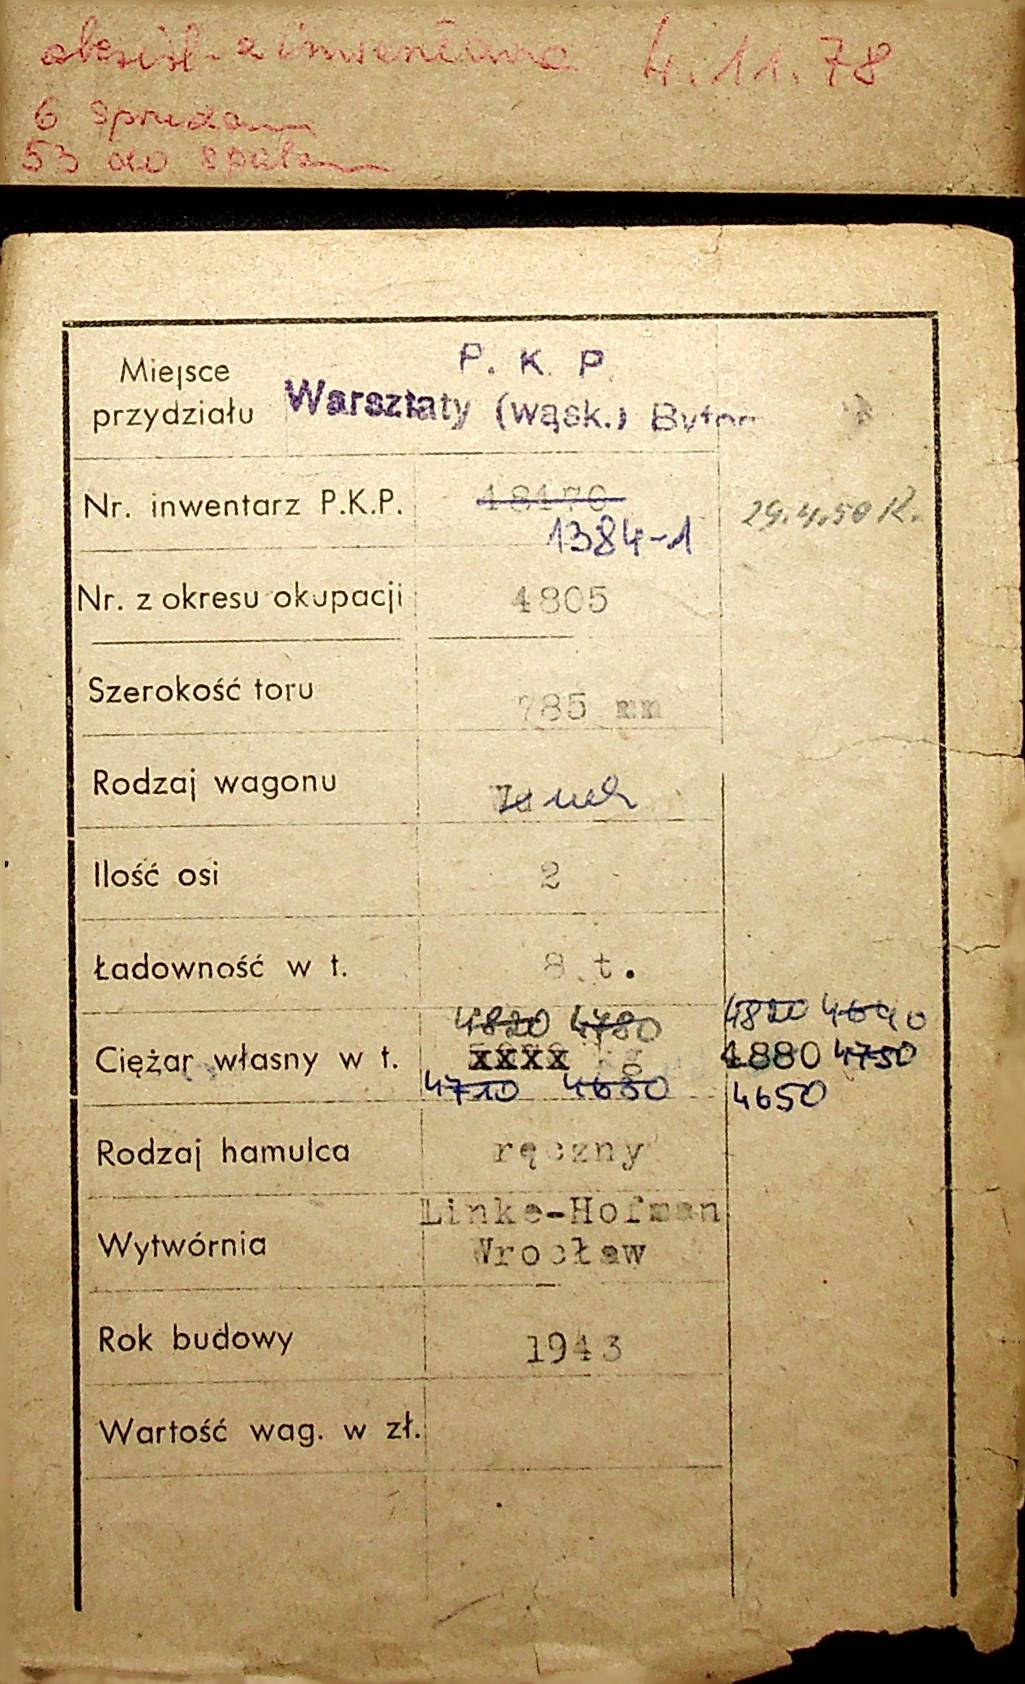 4.11.78
6
53 do
Miejsce przydziału
P. K. P.
Warsztaty (wąsk.)
Nr. inwentarz P.K.P.
18170
29.4.50 R.
1384-1
Nr. z okresu okupacji 4805
Szerokość toru 785 mm
Rodzaj wagonu
Ilość osi 2
Ładowność w t. 8 t.
4820 4780 4820 4640
Ciężar własny w t. xxxx kg 4880 4750
4710 4630 4650
Rodzaj hamulca ręczny
Wytwórnia Linke-Hofman
Wrocław
Rok budowy 1943
Wartość wag. w zł.